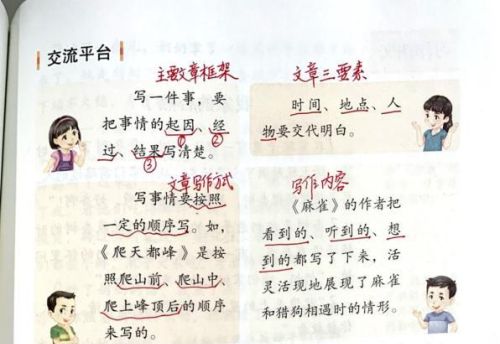 交流平台
主要文章框架
写一件事，要
把事情的起因、经
过、结果写清楚。
① ②
③
文章三要素
时间、地点、人
物要交代明白。
文章写作方式
写事情要按照
一定的顺序写。如，
《爬天都峰》是按
照爬山前、爬山中、
爬上峰顶后的顺序
来写的。
写作内容
《麻雀》的作者把
看到的、听到的、想
到的都写了下来，活
灵活现地展现了麻雀
和猎狗相遇时的情形。